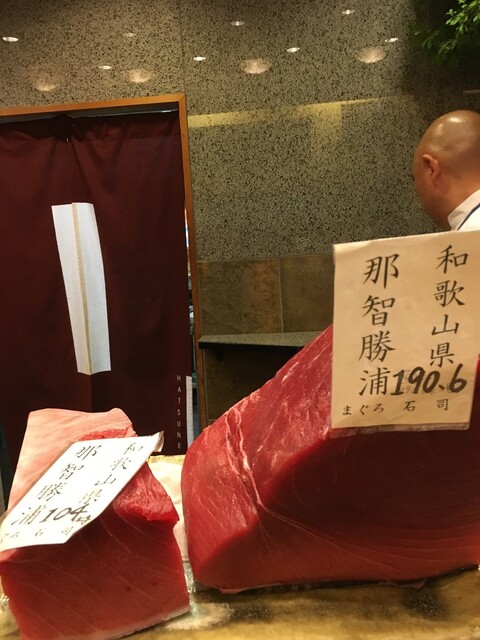 和歌山県
那智勝浦
190.6
まぐろ 石司
HATSUNE
和歌山県
那智勝浦
104
まぐろ 石司